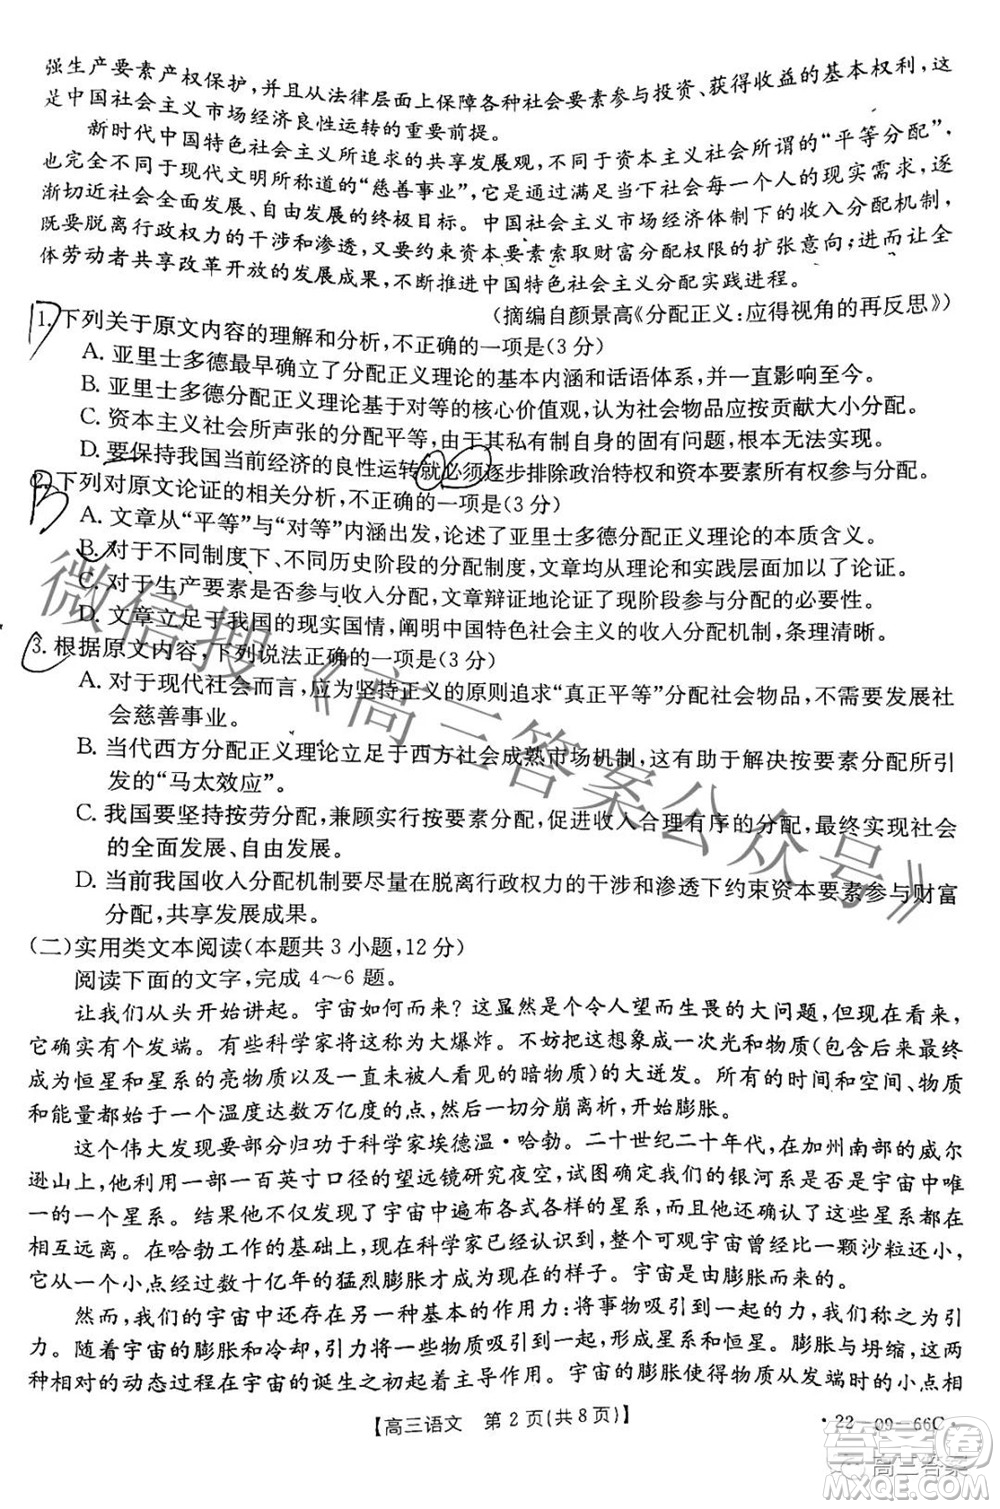 强生产要素产权保护，并且从法律层面上保障各种社会要素参与投资、获得收益的基本权利，这
是中国社会主义市场经济良性运转的重要前提。
新时代中国特色社会主义所追求的共享发展观，不同于资本主义社会所谓的“平等分配”，
也完全不同于现代文明所称道的“慈善事业”，它是通过满足当下社会每一个人的现实需求，逐
渐切近社会全面发展、自由发展的终极目标。中国社会主义市场经济体制下的收入分配机制，
既要脱离行政权力的干涉和渗透，又要约束资本要素索取财富分配权限的扩张意向；进而让全
体劳动者共享改革开放的发展成果，不断推进中国特色社会主义分配实践进程。
（摘编自颜景高《分配正义：应得视角的再反思》）
1. 下列关于原文内容的理解和分析，不正确的一项是（3 分）
A. 亚里士多德最早确立了分配正义理论的基本内涵和话语体系，并一直影响至今。
B. 亚里士多德分配正义理论基于对等的核心价值观，认为社会物品应按贡献大小分配。
C. 资本主义社会所声张的分配平等，由于其私有制自身的固有问题，根本无法实现。
D. 要保持我国当前经济的良性运转就必须逐步排除政治特权和资本要素所有权参与分配。
2. 下列对原文论证的相关分析，不正确的一项是（3 分）
A. 文章从“平等”与“对等”内涵出发，论述了亚里士多德分配正义理论的本质含义。
B. 对于不同制度下、不同历史阶段的分配制度，文章均从理论和实践层面加以了论证。
C. 对于生产要素是否参与收入分配，文章辩证地论证了现阶段参与分配的必要性。
D. 文章立足于我国的现实国情，阐明中国特色社会主义的收入分配机制，条理清晰。
3. 根据原文内容，下列说法正确的一项是（3 分）
A. 对于现代社会而言，应为坚持正义的原则追求“真正平等”分配社会物品，发展社
会慈善事业。
B. 当代西方分配正义理论立足于西方社会成熟市场机制，这有助于解决按要素分配所引
发的“马太效应”。
C. 我国要坚持按劳分配，兼顾实行按要素分配，促进收入合理有序的分配，最终实现社会
的全面发展、自由发展。
D. 当前我国收入分配机制要尽量在脱离行政权力的干涉和渗透下约束资本要素参与财富
分配，共享发展成果。
（二）实用类文本阅读（本题共 3 小题，12 分）
阅读下面的文字，完成 4～6 题。
让我们从头开始讲起。宇宙如何而来？这显然是个令人望而生畏的大问题，但现在看来，
它确实有个发端。有些科学家将这称为大爆炸。不妨把这想象成一次光和物质（包含后来最终
成为恒星和星系的亮物质以及一直未被人看见的暗物质）的大迸发。所有的时间和空间、物质
和能量都始于一个温度达数万亿度的小点，然后一切分崩离析，开始膨胀。
这个伟大发现要部分归功于科学家埃德温·哈勃。二十世纪二十年代，在加州南部的威尔
逊山上，他利用一部一百英寸口径的望远镜研究夜空，试图确定我们的银河系是否是宇宙中唯
一的一个星系。结果他不仅发现了宇宙中遍布各式各样的星系，还发现这些星系都在加速
相互远离。在哈勃工作的基础上，科学家已经认识到，整个可观宇宙曾经比一颗沙粒还小，它
从一个小点经过数十亿年的猛烈膨胀才成为现在的样子。宇宙是由膨胀造就的。
然而，我们的宇宙中还存在另一种基本的作用力：将事物吸引到一起的力，我们称为引
力。随着宇宙的膨胀和冷却，引力将一些物质吸引到一起，形成星系和恒星。膨胀与坍缩，这两
种相对的动态过程在宇宙的诞生之初达到平衡。宇宙的膨胀使得物质从最初的一个小点相
【高三语文　第 2 页（共 8 页）】
·22－09－66C·
微信搜《高三答案公众号》
答案圈
高三答案
MXQE.COM